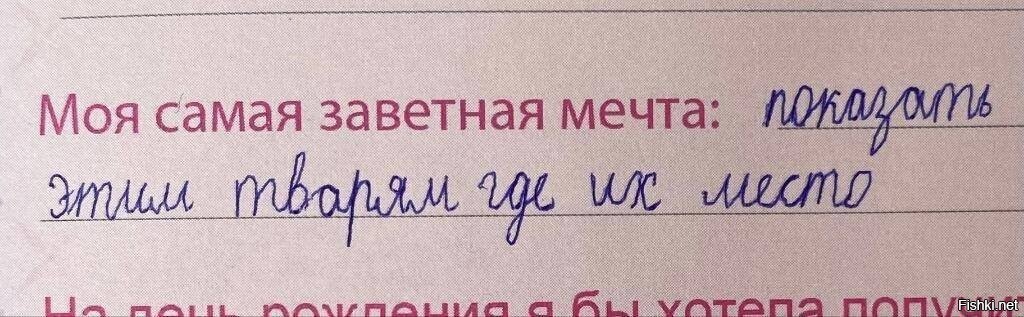 Моя самая заветная мечта: показать
этим тварям где их место
На день рождения я бы хотела получи
Fishki.net